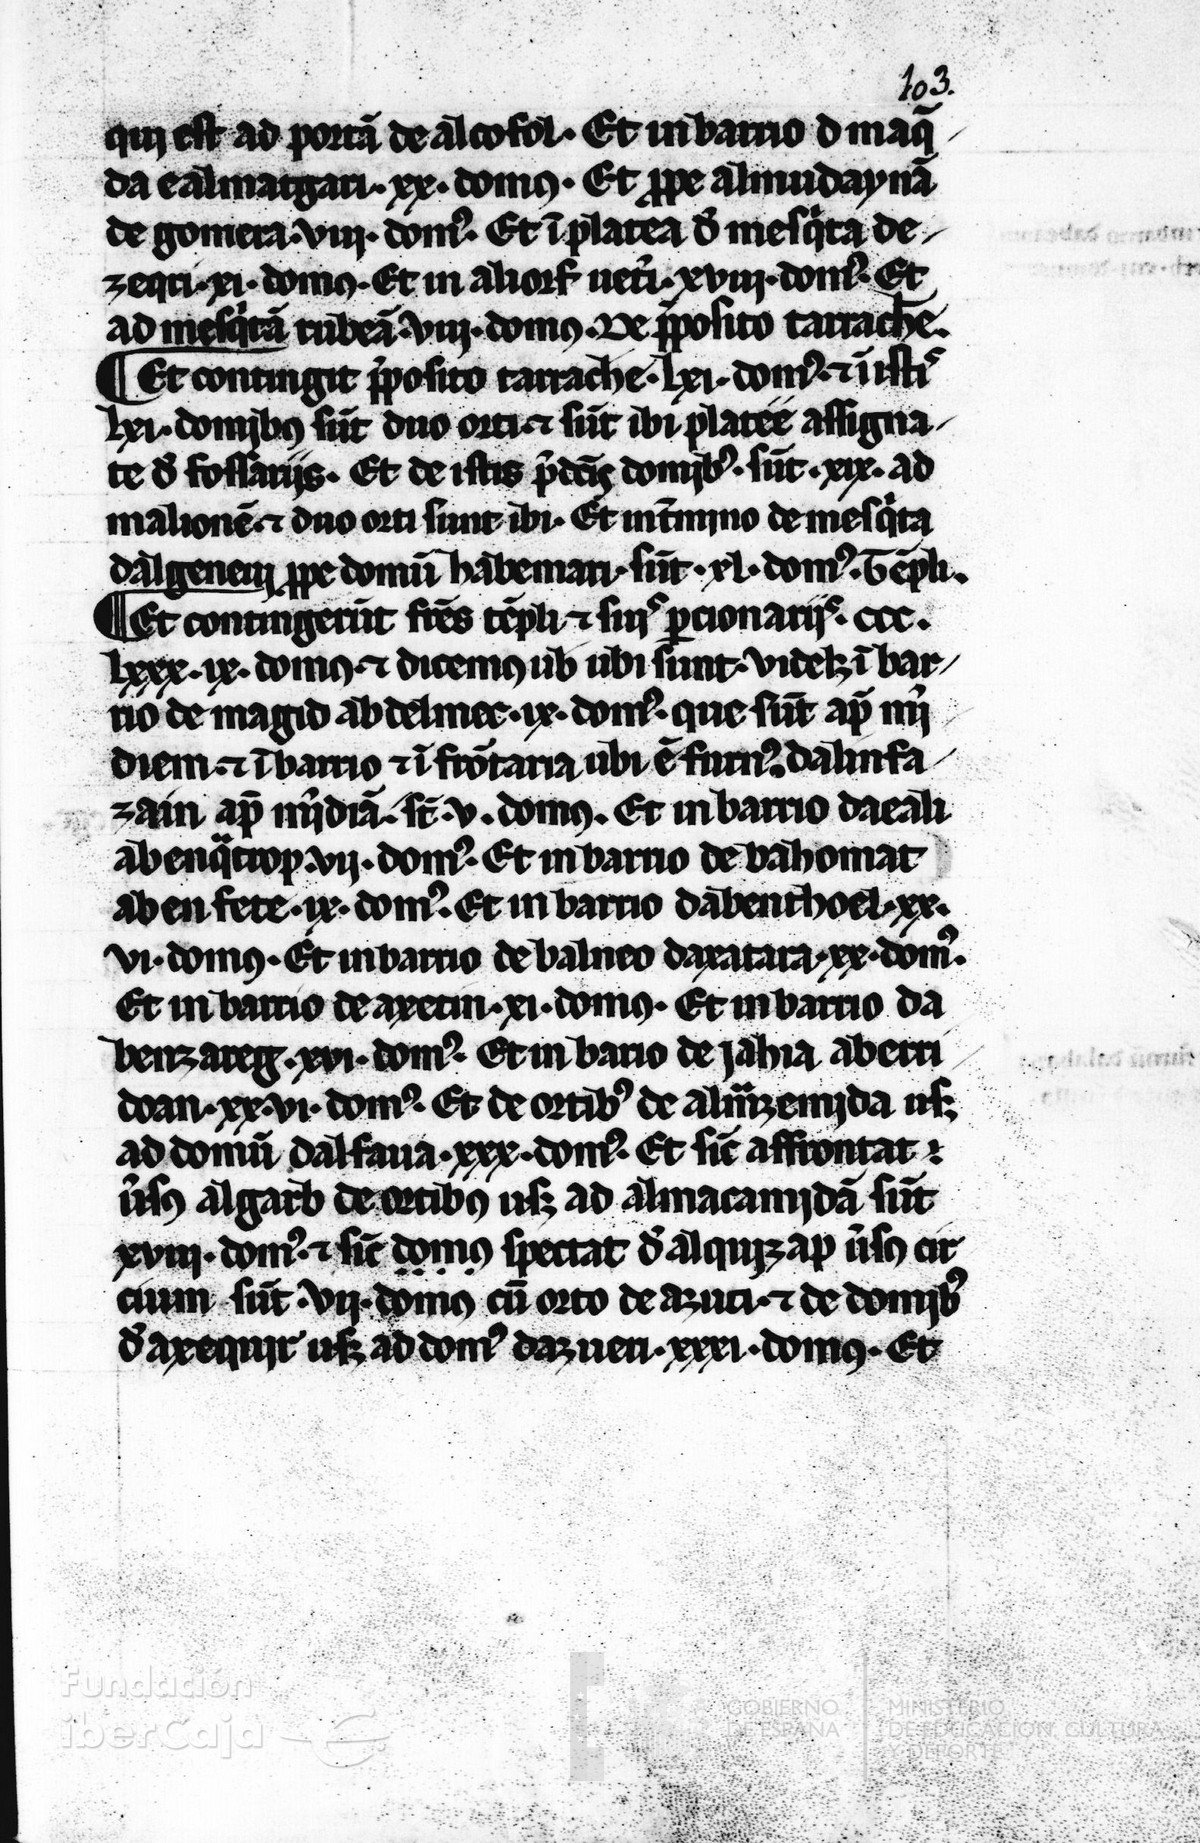 103.
qui est ad portā de alcofol· Et in barrio d maq̄
da ealmatgari· xx· domꝰ· Et ꝓpe almudaynā
de gomera· viii· domꝰ· Et ī platea d̉ mesq̉ta de
zeqri· xi· domꝰ· Et in aliorf uet̉i· xviii· domꝰ· Et
ad mesq̉tā rubeā· viii· domꝰ· De p̄posito tarrache·
¶ Et contingit p̄posito tarrache· lxi· domꝰ· ⁊ ī istis
lxi· domibꝰ sūt duo orti· ⁊ sūt ibi platee assigna
te d̉ fossariis· Et de istis p̄dc̄is domibꝰ· sūt· xix· ad
malionē· ⁊ duo orti sunt ibi· Et in t̄mino de mesq̉ta
dalgeneui ꝓpe domū habemari· sūt· xl· domꝰ· Tēpli·
¶ Et contingerūt fr̄es tēpli ⁊ suis ꝑcionariis· ccc·
lxxx· ix· domꝰ· ⁊ dicemꝰ ub ubi sunt· videlꝫ ī bar
rio de magid abdelmec· ix· domꝰ· que sūt ap̄ mỉ
diem· ⁊ ī barrio ⁊ ī frōtaria ubi ē furnꝰ dalinfa
zain ap̄ mỉdiā· st̄· v· domꝰ· Et in barrio daeali
abenq̄trop· vii· domꝰ· Et in barrio de bahomat
aben fete· ix· domꝰ· Et in barrio dabenthoel· xx·
vi· domꝰ· Et in barrio de balneo daxatara· xx· domꝰ·
Et in barrio de axetin· xi· domꝰ· Et in barrio da
benzareg· xvi· domꝰ· Et in bario de jahia aberri
doan· xx· vi· domꝰ· Et de ortibꝰ de usꝫ
ad domū dalfaua· xxx· domꝰ· Et sic̄ affrontat
ūsꝰ algarb de ortibꝰ usꝫ ad almacamidā sūt
xviii· domꝰ· ⁊ sic̄ domꝰ spectat d̉ alquizap ūsꝰ cir
cium sūt· vii· domꝰ cū orto de azuti· ⁊ de domibꝰ
d̉ axequir usꝫ ad domꝰ dazueri· xxxi· domꝰ· Et
Fundación
iberCaja
GOBIERNO
DE ESPAÑA
MINISTERIO
DE EDUCACIÓN, CULTURA
Y DEPORTE